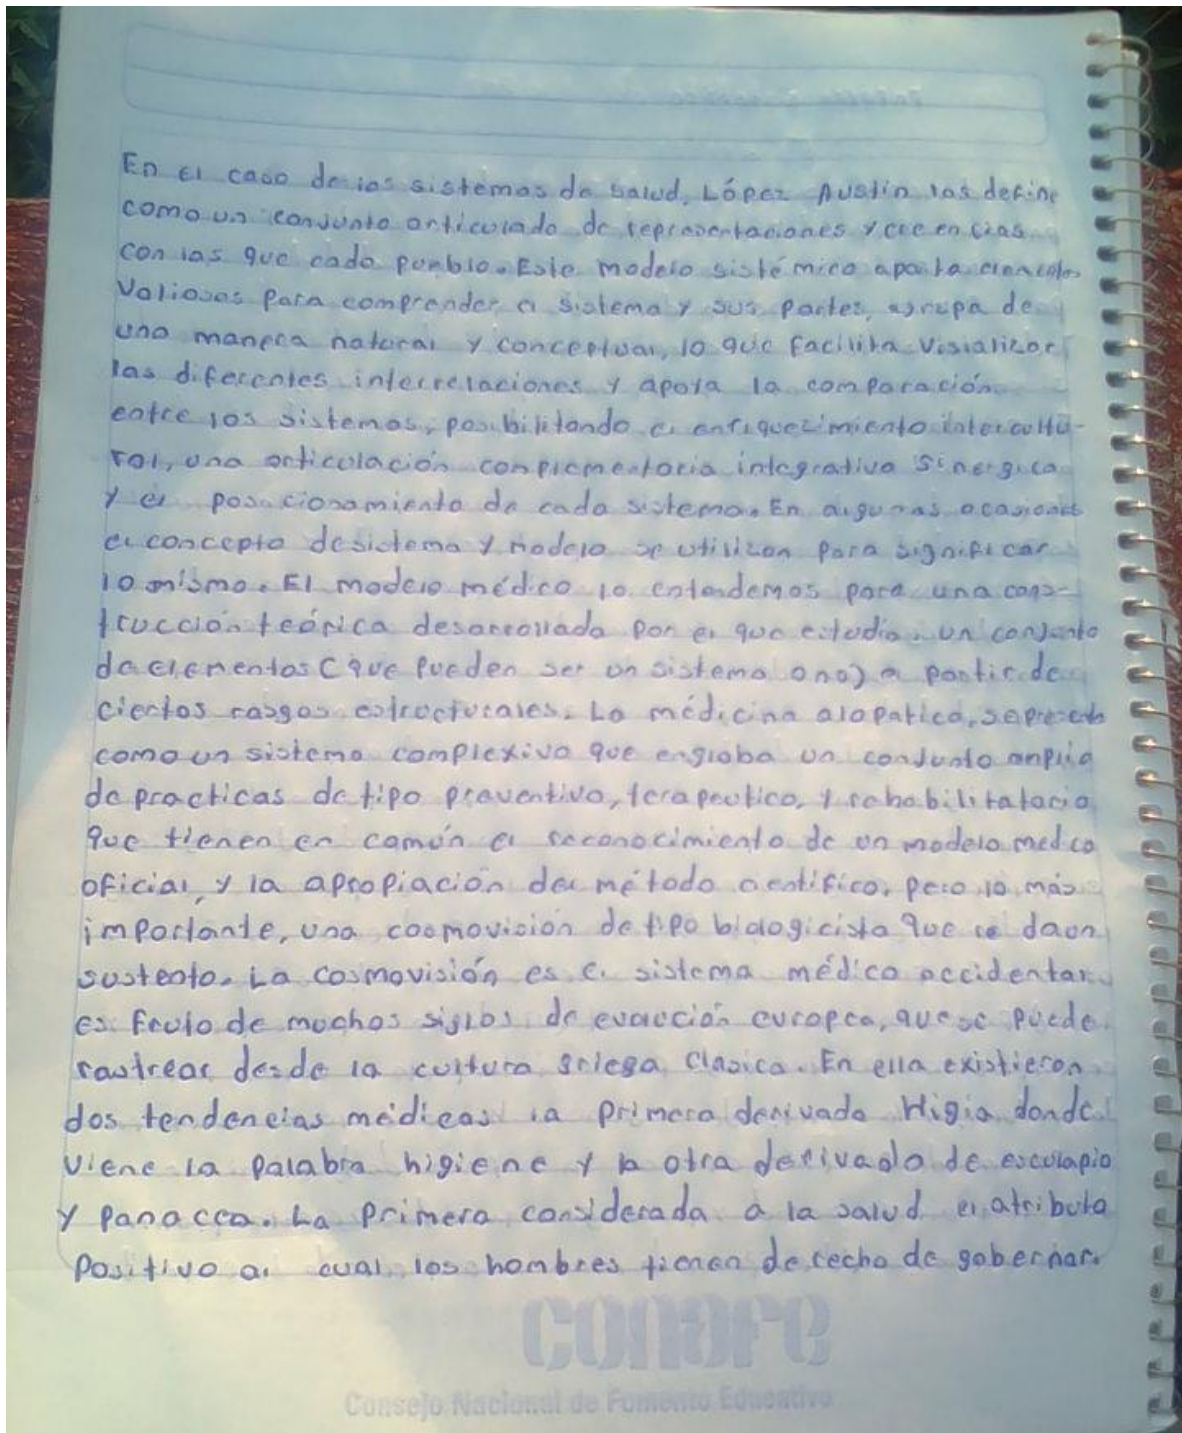 En el caso de los sistemas de salud, López Austin las define
como un conjunto articulado de representaciones y creencias
con las que cada pueblo. Este modelo sistémico aporta elementos
Valiosos para comprender el sistema y sus partes, agrupa de
una manera natural y conceptual, lo que facilita visializar
las diferentes interrelaciones y apoya la comparación
entre los sistemas, posibilitando el enriquecimiento intercultu-
ral, una articulación complementaria integrativa sinergica
y el posicionamiento de cada sistema. En algunas ocasiones
el concepto de sistema y modelo se utilizan para significar
lo mismo. El modelo médico lo entendemos para una cons-
trucción teórica desarrollada por el que estudia. un conjunto
de elementos (que pueden ser un sistema o no) a partir de
ciertos rasgos estructurales. La médicina alopatica, se presenta
como un sistema complexivo que engloba un conjunto amplio
de practicas de tipo preventivo, terapeutico, y rehabilitatorio
que tienen en común el reconocimiento de un modelo medico
oficial, y la apropiación del método científico, pero lo más
importante, una cosmovision de tipo biologicista que le da un
sustento. La cosmovisión es el sistema médico occidental
es fruto de muchos siglos de evolución europea, que se puede
rastrear desde la cultura griega clasica. En ella existieron
dos tendencias médicas la primera derivada Higia donde
viene la palabra higiene y la otra derivado de esculapio
y panacea. La primera considerada a la salud el atributo
positivo al cual los hombres tienen derecho de gobernar.
conafe
Consejo Nacional de Fomento Educativo